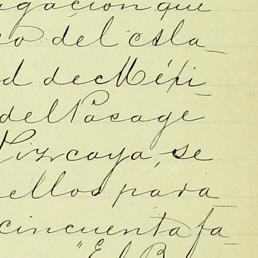 gación que
co del esla-
d de Méji-
del Pasage
Vizcaya, se
ellos para
cincuenta fa-
"El B